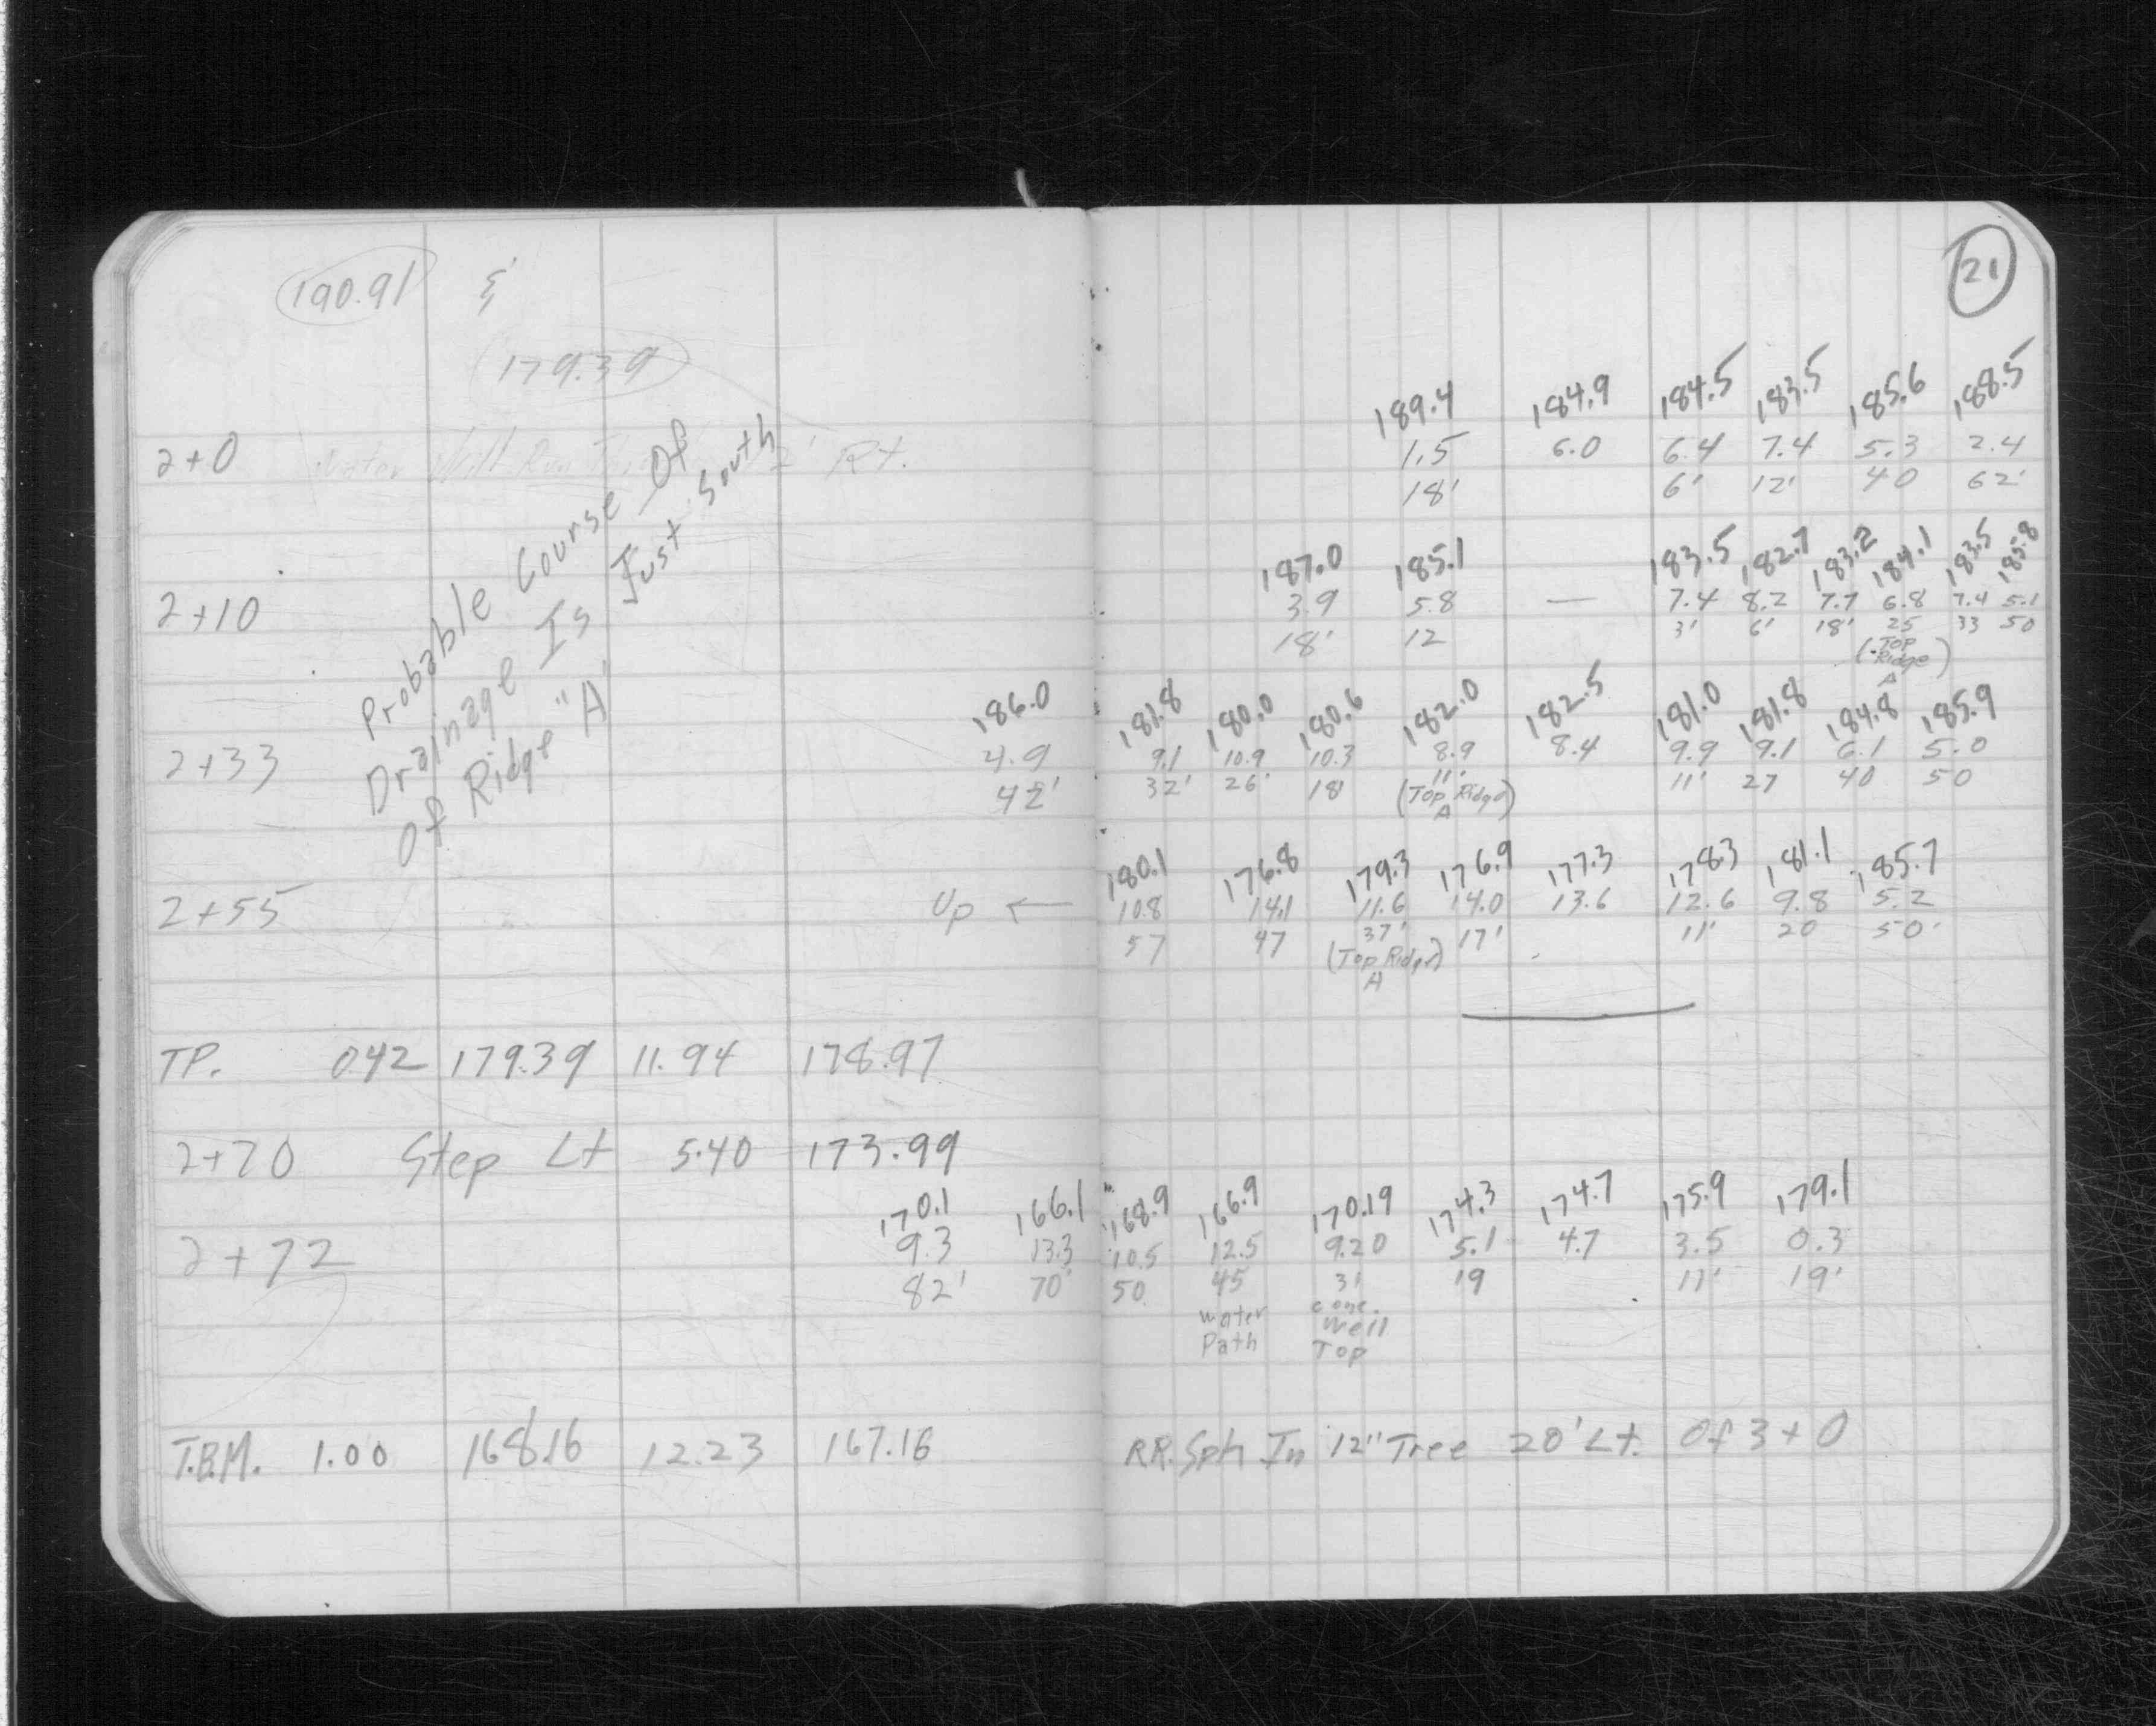 190.91 &
21
179.39
189.4 184.9 184.5 183.5 185.6 188.5
2+0 Water Will Run 2' Rt. 1.5 6.0 6.4 7.4 5.3 2.4
18' 6' 12' 40 62'
Probable Course Of
Drainage Is Just South
Of Ridge "A"
187.0 185.1 183.5 182.7 183.2 184.1 183.5 185.8
2+10 3.9 5.8 — 7.4 8.2 7.7 6.8 7.4 5.1
18' 12 3' 6' 18' 25 33 50
(Top
Ridge)
A
186.0 181.8 180.0 180.6 182.0 182.5 181.0 181.8 184.8 185.9
2+33 4.9 9.1 10.9 10.3 8.9 8.4 9.9 9.1 6.1 5.0
42' 32' 26' 18' 11' 11' 27 40 50
(Top Ridge)
A
180.1 176.8 179.3 176.9 177.3 178.3 181.1 185.7
2+55 Up ← 10.8 14.1 11.6 14.0 13.6 12.6 9.8 5.2
57 47 37' 17' 11' 20 50'
(Top Ridge)
A
TP. 0.42 179.39 11.94 178.97
2+70 Step Lt 5.40 173.99
170.1 166.1 168.9 166.9 170.19 174.3 174.7 175.9 179.1
2+72 9.3 13.3 10.5 12.5 9.20 5.1 4.7 3.5 0.3
82' 70' 50 45 31 19 11' 19'
Water conc.
Path Wall
Top
T.B.M. 1.00 168.16 12.23 167.16 RR. Spk In 12" Tree 20' Lt. Of 3+0